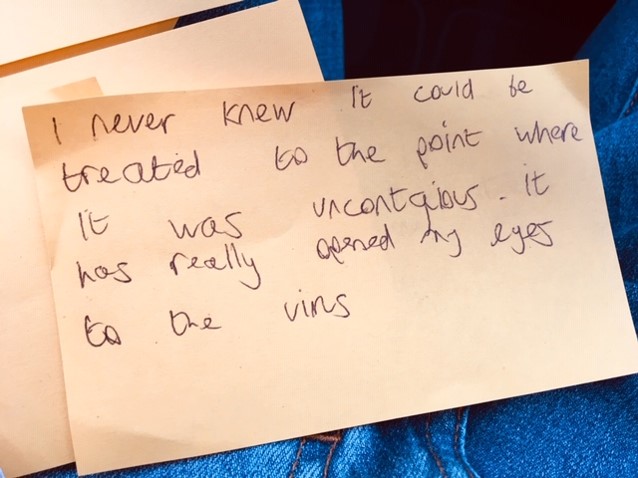 I never knew it could be
treated to the point where
it was uncontagious. it
has really opened my eyes
to the virus